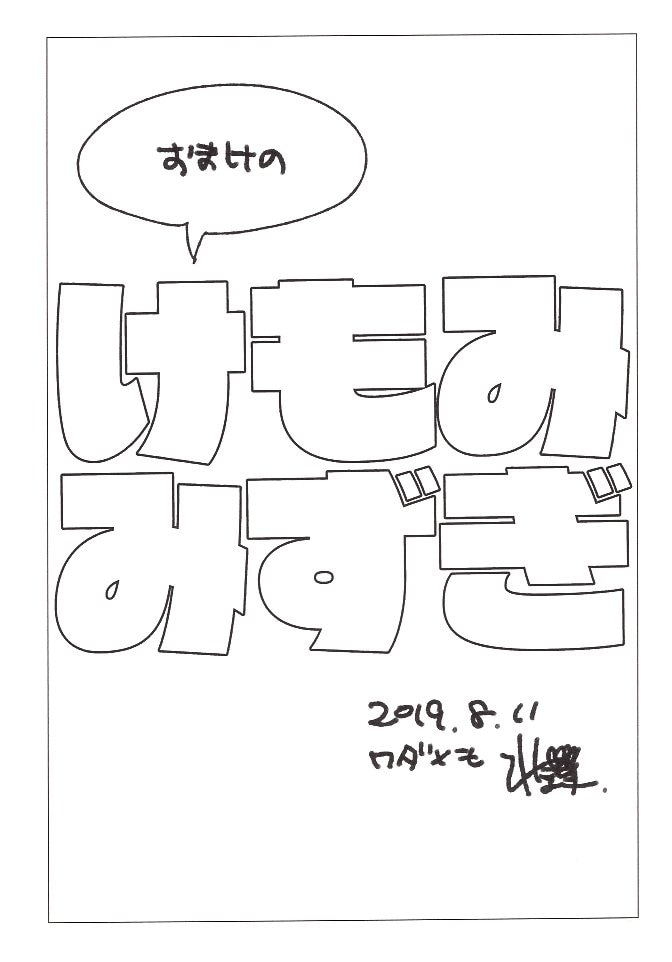 おまけの
けもみ
みずぎ
2019.8.11
ワダメモ